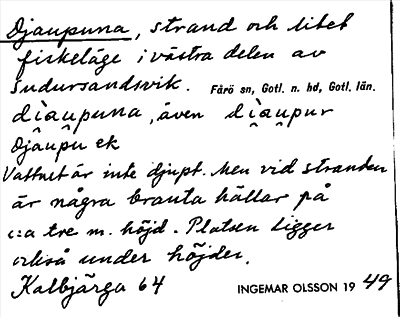 Djaupuna, strand och litet
fiskeläge i västra delen av
Sudursandsvik. Fårö sn, Gotl. n. hd, Gotl. län.
dìau̯puna, även dìau̯pur
djâu̯pu ek
Vattnet är inte djupt. Men vid stranden
är några branta hällar på
c:a tre m. höjd. Platsen ligger
också under höjder.
Kalbjärga 64 INGEMAR OLSSON 19 49